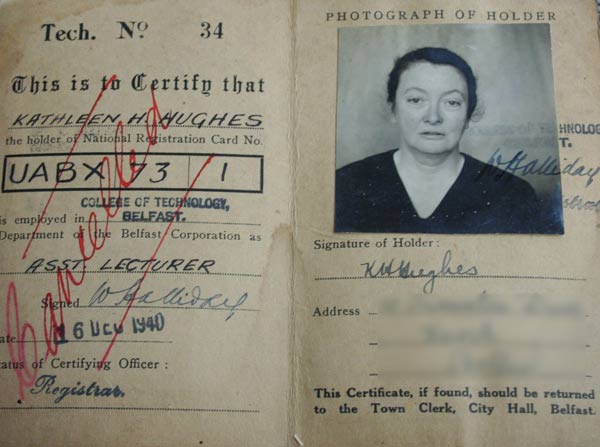 Tech. No 34
This is to Certify that
KATHLEEN H. HUGHES
the holder of National Registration Card No.
UABX 73 1
COLLEGE OF TECHNOLOGY,
is employed in BELFAST.
Department of the Belfast Corporation as
ASST. LECTURER
Signed W Halliday
Date 16 DEC 1940
Status of Certifying Officer :
Registrar.
Cancelled
PHOTOGRAPH OF HOLDER
HNOLOG
T.
W Halliday
Signature of Holder :
KH Hughes
Address
This Certificate, if found, should be returned
to the Town Clerk, City Hall, Belfast.